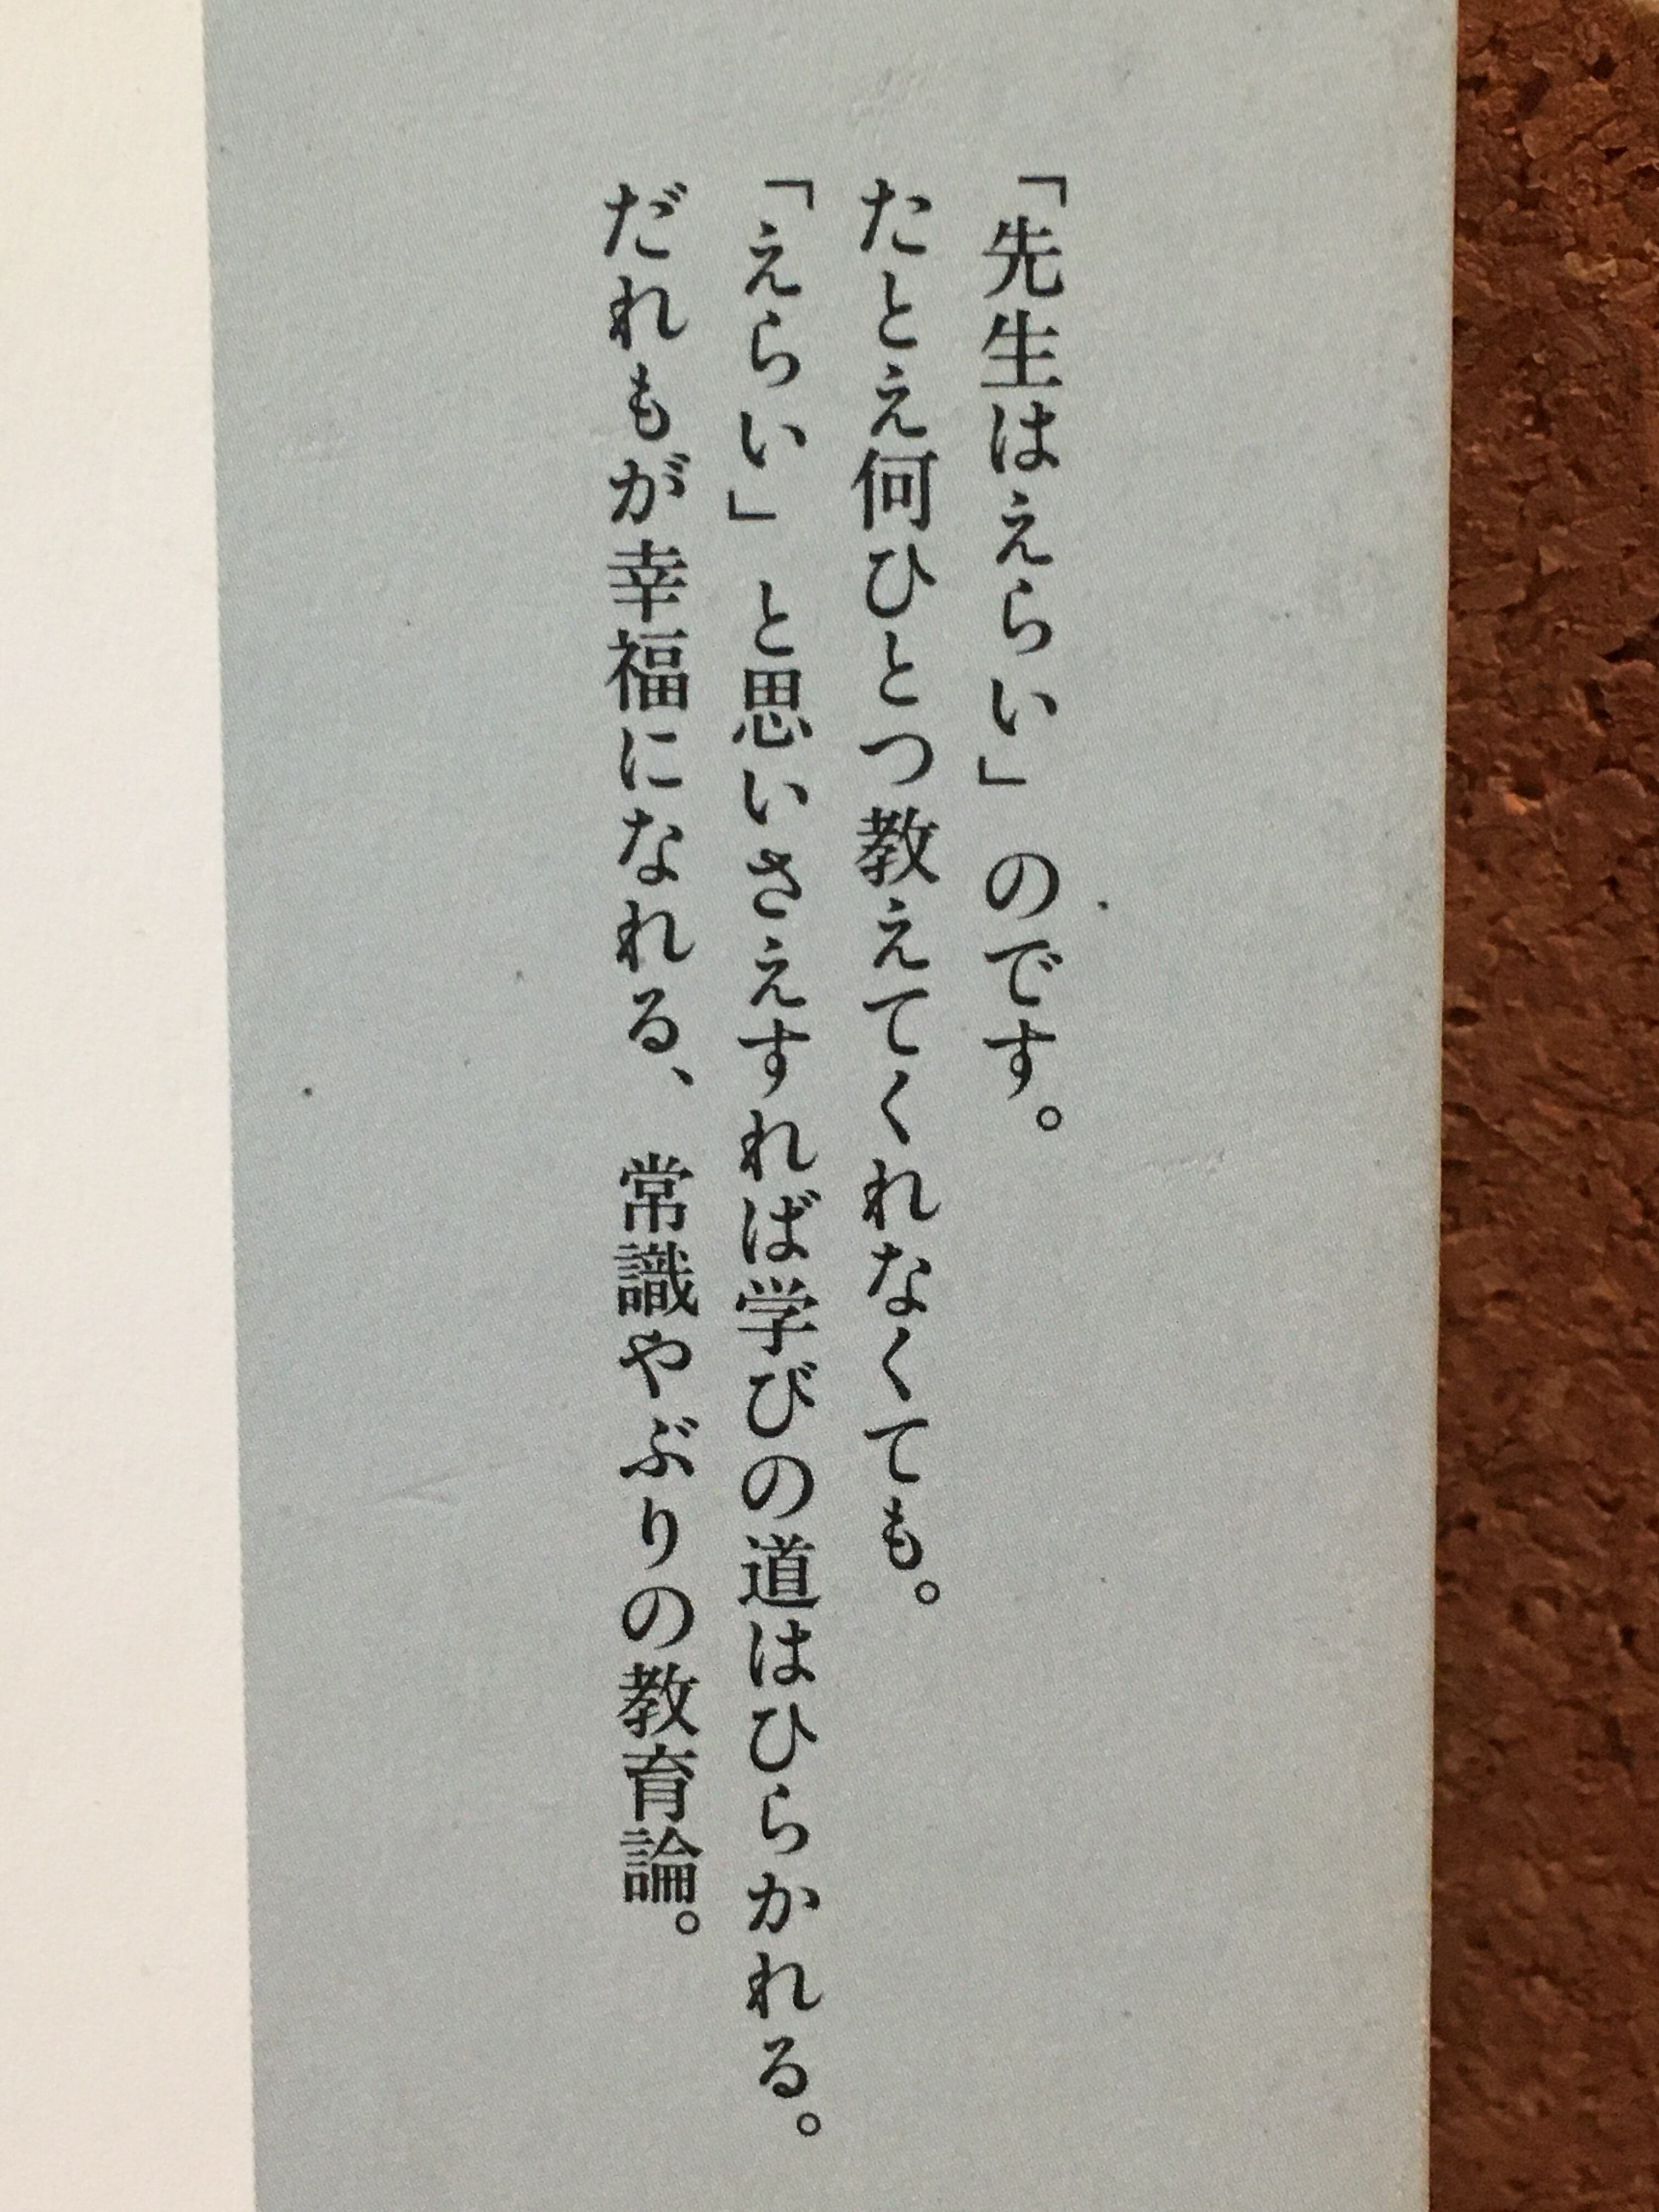 「先生はえらい」のです。
たとえ何ひとつ教えてくれなくても。
「えらい」と思いさえすれば学びの道はひらかれる。
だれもが幸福になれる、常識やぶりの教育論。